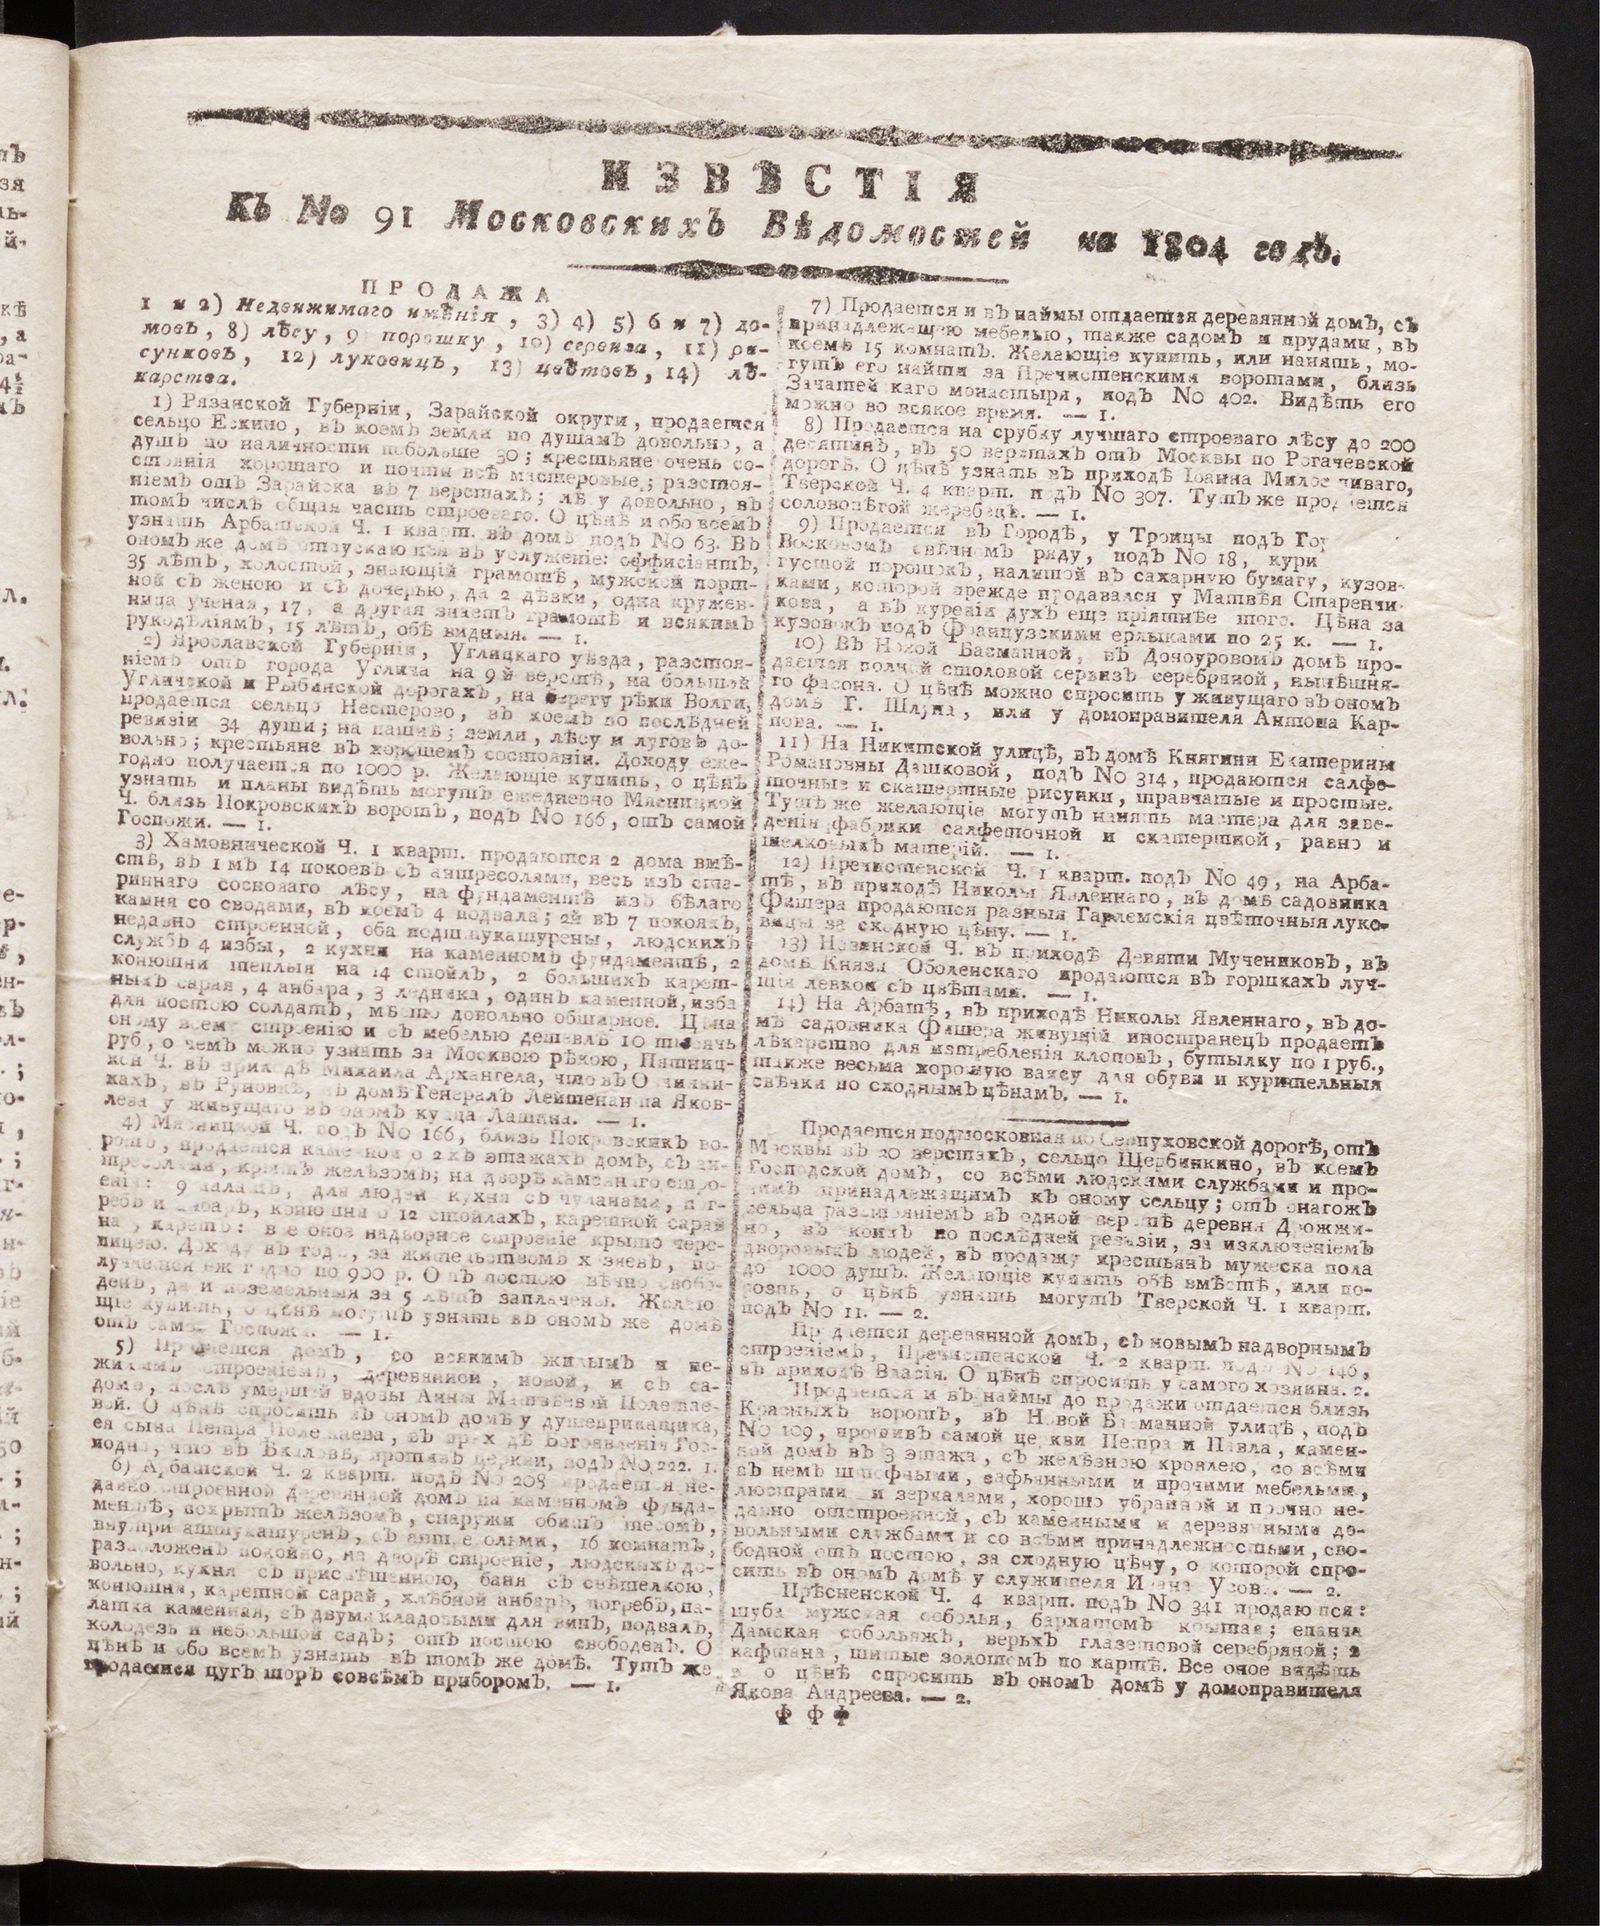 ИЗВѢСТІЯ
Къ No 91 Московскихъ Вѣдомостей на 1804 годъ.
ПРОДАЖА
1 и 2) Недвижимаго имѣнія, 3) 4) 5) 6 и 7) до-
мовъ, 8) лѣсу, 9) порошку, 10) сервиза, 11) ри-
сунковъ, 12) луковицъ, 13) цвѣтовъ, 14) лѣ-
карства.
1) Рязанской Губерніи, Зарайской округи, продается
сельцо Ескино, въ коемъ земли по душамъ довольно, а
душъ по наличности побольше 30; крестьяне очень со-
стоянія хорошаго и почти всѣ мастеровые; разстоя-
ніемъ отъ Зарайска въ 7 верстахъ; лѣсу довольно, въ
томъ числѣ общая часть строеваго. О цѣнѣ и обо всемъ
узнать Арбатской Ч. 1 кварт. въ домѣ подъ No 63. Въ
ономъ же домѣ отпускаются въ услуженіе: оффисіантъ,
35 лѣтъ, холостой, знающій грамотѣ, мужской порт-
ной съ женою и съ дочерью, да 2 дѣвки, одна кружев-
ница ученая, 17, а другая знаетъ грамотѣ и всякимъ
рукодѣліямъ, 15 лѣтъ, обѣ видныя. — 1.
2) Ярославской Губерніи, Углицкаго уѣзда, разстоя-
ніемъ отъ города Углича на 9й верстѣ, на большой
Угличской и Рыбинской дорогахъ, на берегу рѣки Волги,
продается сельцо Нестерово, въ коемъ по послѣдней
ревизіи 34 души; на пашнѣ; земли, лѣсу и луговъ до-
вольно; крестьяне въ хорошемъ состояніи. Доходу еже-
годно получается по 1000 р. Желающіе купить, о цѣнѣ
узнать и планы видѣть могутъ ежедневно Мясницкой
Ч. близь Покровскихъ воротъ, подъ No 166, отъ самой
Госпожи. — 1.
3) Хамовнической Ч. 1 кварт. продаются 2 дома вмѣ-
стѣ, въ 1 мъ 14 покоевъ съ антресолями, весь изъ ста-
риннаго сосноваго лѣсу, на фундаментѣ изъ бѣлаго
камня со сводами, въ коемъ 4 подвала; 2й въ 7 покояхъ,
недавно строенной, оба подштукатурены, людскихъ
службъ 4 избы, 2 кухни на каменномъ фундаментѣ, 2
конюшни теплыя на 14 стойлъ, 2 большихъ карет-
ныхъ сарая, 4 анбара, 3 ледника, одинъ каменной, изба
для постою солдатъ, мѣсто довольно обширное. Цѣна
оному всему строенію и съ мебелью дешевлѣ 10 тысячь
руб, о чемъ можно узнать за Москвою рѣкою, Пятниц-
кой Ч. въ приходѣ Михаила Архангела, что въ Овчинни-
кахъ, въ Руновкѣ, въ домѣ Генералъ Лейтенанта Яков-
лева у живущаго въ ономъ купца Лашина. — 1.
4) Мясницкой Ч. подъ No 166, близь Покровскихъ во-
ротъ, продается каменной о 2хъ этажахъ домъ, съ ан-
тресолями, крытъ желѣзомъ; на дворѣ каменнаго стро-
енія: 9 палатъ, для людей кухня съ чуланами, пог-
ребъ и анбаръ, конюшня о 12 стойлахъ, каретной сарай
на карету: все оное надворное строеніе крыто чере-
пицею. Доходу въ годъ, за жительствомъ хозяевъ, по-
лучается ежегодно по 900 р. Отъ постою вѣчно свобо-
денъ, да и поземельныя за 5 лѣтъ заплачены. Желаю-
щіе купить, о цѣнѣ могутъ узнать въ ономъ же домѣ
отъ самой Госпожи. — 1.
5) Продается домъ, со всякимъ жилымъ и не-
жилымъ строеніемъ, деревянной, новой, и съ са-
домъ, послѣ умершей вдовы Анны Матвѣевой Полежае-
вой. О цѣнѣ спросить въ ономъ домѣ у душеприкащика,
ея сына Петра Полежаева, въ приходѣ Богоявленія Гос-
подня, что въ Елоховѣ, противъ церкви, подъ No 222. 1.
6) Арбатской Ч. 2 кварт. подъ No 208 продается не-
давно строенной деревянной домъ на каменномъ фунда-
ментѣ, покрытъ желѣзомъ, снаружи обитъ тесомъ,
внутри аштукатуренъ, съ антресольми, 16 комнатъ,
разположенъ покойно, на дворѣ строеніе, людскихъ до-
вольно, кухня съ приспѣшенною, баня съ свѣтелкою,
конюшня, каретной сарай, хлѣбной анбаръ, погребъ, па-
латка каменная, съ двумя кладовыми для винъ, подвалъ,
колодезь и небольшой садъ; отъ постою свободенъ. О
цѣнѣ и обо всемъ узнать въ томъ же домѣ. Тутъ же
продается цугъ шоръ совсѣмъ прибором. — 1.
7) Продается и въ наймы отдается деревянной домъ, съ
принадлежащею мебелью, также садомъ и прудами, въ
коемъ 15 комнатъ. Желающіе купить, или нанять, мо-
гутъ его найти за Пречистенскими воротами, близь
Зачатейскаго монастыря, подъ No 402. Видѣть его
можно во всякое время. — 1.
8) Продается на срубку лучшаго строеваго лѣсу до 200
десятинъ, въ 50 верстахъ отъ Москвы по Рогачевской
дорогѣ. О цѣнѣ узнать въ приходѣ Іоанна Милостиваго,
Тверской Ч. 4 кварт. подъ No 307. Тутъ же продается
соловопѣгой жеребецъ. — 1.
9) Продается въ Городѣ, у Троицы подъ Гор
Восковомъ свѣчномъ ряду, подъ No 18, кури
густой порошокъ, налитой въ сахарную бумагу, кузов-
ками, которой прежде продавался у Матвѣя Старенчи-
кова, а въ куреніи духъ еще пріятнѣе того. Цѣна за
кузовокъ подъ Французскими ерлыками по 25 к. — 1.
10) Въ Новой Басманной, въ Дочоуровомъ домѣ про-
дается полной столовой сервизъ серебряной, нынѣшня-
го фасона. О цѣнѣ можно спросить у живущаго въ ономъ
домѣ Г. или у домоправителя Антона Кар-
пова. — 1.
11) На Никитской улицѣ, въ домѣ Княгини Екатерины
Романовны Дашковой, подъ No 314, продаются салфе-
точные и скатертные рисунки, травчатые и простые.
Тутъ же желающіе могутъ нанять мастера для заве-
денія фабрики салфеточной и скатертной, равно и
шелковыхъ матерій. — 1.
12) Пречистенской Ч. 1 кварт. подъ No 49, на Арба-
тѣ, въ приходѣ Николы Явленнаго, въ домѣ садовника
Фишера продаются разныя Гарлемскія цвѣточныя луко-
вицы за сходную цѣну. — 1.
13) Ч. въ приходѣ Девяти Мучениковъ, въ
домѣ Князя Оболенскаго продаются въ горшкахъ луч-
шія левкои съ цвѣтами. — 1.
14) На Арбатѣ, въ приходѣ Николы Явленнаго, въ до-
мѣ садовника Фишера живущій иностранецъ продаетъ
лѣкарство для изтребленія клоповъ, бутылку по 1 руб.,
также весьма хорошую ваксу для обуви и курительныя
свѣчки по сходнымъ цѣнамъ. — 1.
Продается подмосковная по Серпуховской дорогѣ, отъ
Москвы въ 20 верстахъ, сельцо Щербинкино, въ коемъ
Господской домъ, со всѣми людскими службами и про-
чимъ принадлежащимъ къ оному сельцу; отъ онагожъ
сельца разстояніемъ въ одной верстѣ деревня Дрожжи-
но, въ коихъ по послѣдней ревизіи, за изключеніемъ
дворовыхъ людей, въ продажу крестьянъ мужеска пола
до 1000 душъ. Желающіе купить обѣ вмѣстѣ, или по-
рознь, о цѣнѣ узнать могутъ Тверской Ч. 1 кварт.
подъ No 11. — 2.
Продается деревянной домъ, съ новымъ надворнымъ
строеніемъ, Пречистенской Ч. 2 кварт. подъ No 146,
въ приходѣ Власія. О цѣнѣ спросить у самого хозяина. 2.
Продается и въ наймы до продажи отдается близь
Красныхъ воротъ, въ Новой Басманной улицѣ, подъ
No 109, противъ самой церкви Петра и Павла, камен-
ной домъ въ 3 этажа, съ желѣзною кровлею, со всѣми
въ немъ штофными, сафьянными и прочими мебельми,
люстрами и зеркалами, хорошо убранной и прочно не-
давно отстроенной, съ каменными и деревянными до-
вольными службами и со всѣми принадлежностьми, сво-
бодной отъ постою, за сходную цѣну, о которой спро-
сить въ ономъ домѣ у служителя Ивана Усова. — 2.
Прѣсненской Ч. 4 кварт. подъ No 341 продаются:
шуба мужская соболья, бархатомъ крытая; епанча
Дамская собольяжъ, верьхъ глазетовой серебряной; 2
кафтана, шитые золотомъ по картѣ. Все оное видѣть
и о цѣнѣ спросить въ ономъ домѣ у домоправителя
Якова Андреева. — 2.
Ф Ф Ф